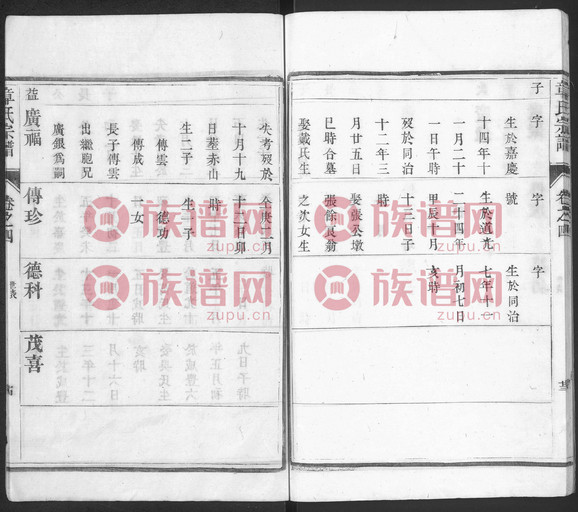 章氏宗譜
卷之四
子
字
生於嘉慶
十四年十
一月二十
一日午時
歿於同治
十二年三
月廿五日
巳時合墓
娶戴氏生
字
號
生於道光
二十四年
甲辰十月
十三日子
時
娶張公墩
張餘良翁
之次女生
字
生於同治
七年十一
月初七日
亥時
失考歿於
十月十九
日葬赤山
生二子
傳雲
傳成
長子傳雲
出繼胞兄
廣銀爲嗣
益
廣福
十一日卯
時
生一子
德功
一女
傳珍
德科
茂喜
章氏宗譜
卷之四
世表
族谱网
zupu.cn
族谱网
zupu.cn
族谱网
zupu.cn
族谱网
zupu.cn
族谱网
zupu.cn
族谱网
zupu.cn